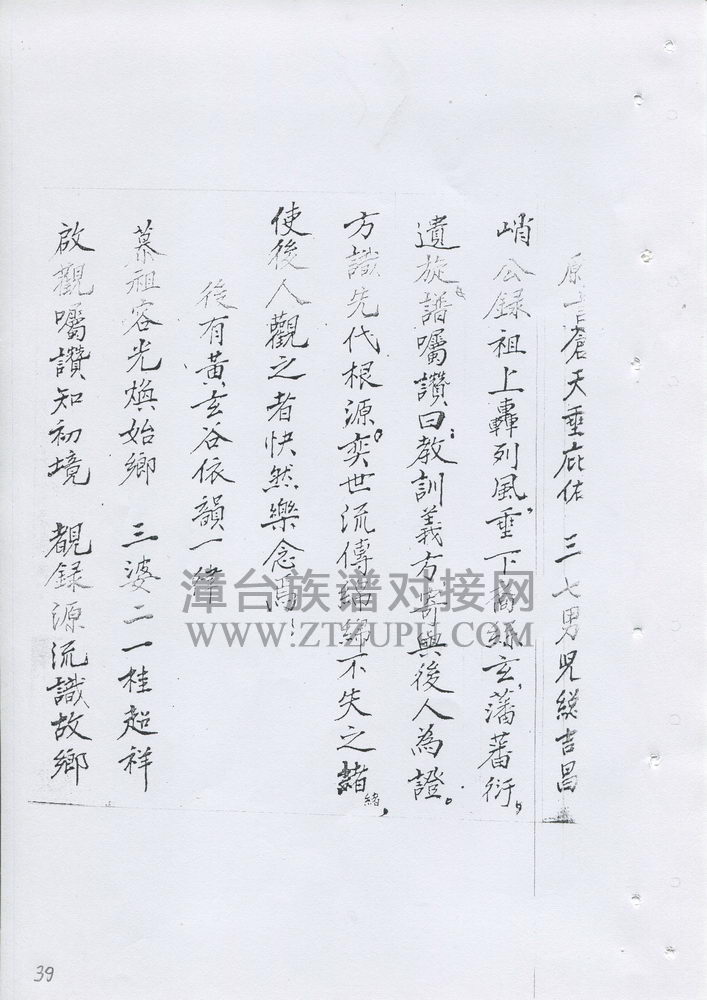 原 蒼天垂庇佑 三七男兒総吉昌
峭公錄祖上轟列風，垂下 玄，藩蕃衍，
遺旋譜囑讚曰：教訓義方寄與後人為證。
方識先代根源。奕世流傳綿綿不失之緒 緒，
使後人觀之者快然樂念焉
後有黃玄谷依韻一律
慕祖容光煥始鄉 三婆二一桂超祥
啟觀囑讚知初境 覩錄源流識故鄉
漳台族谱对接网
WWW.ZTZUPU.COM
39